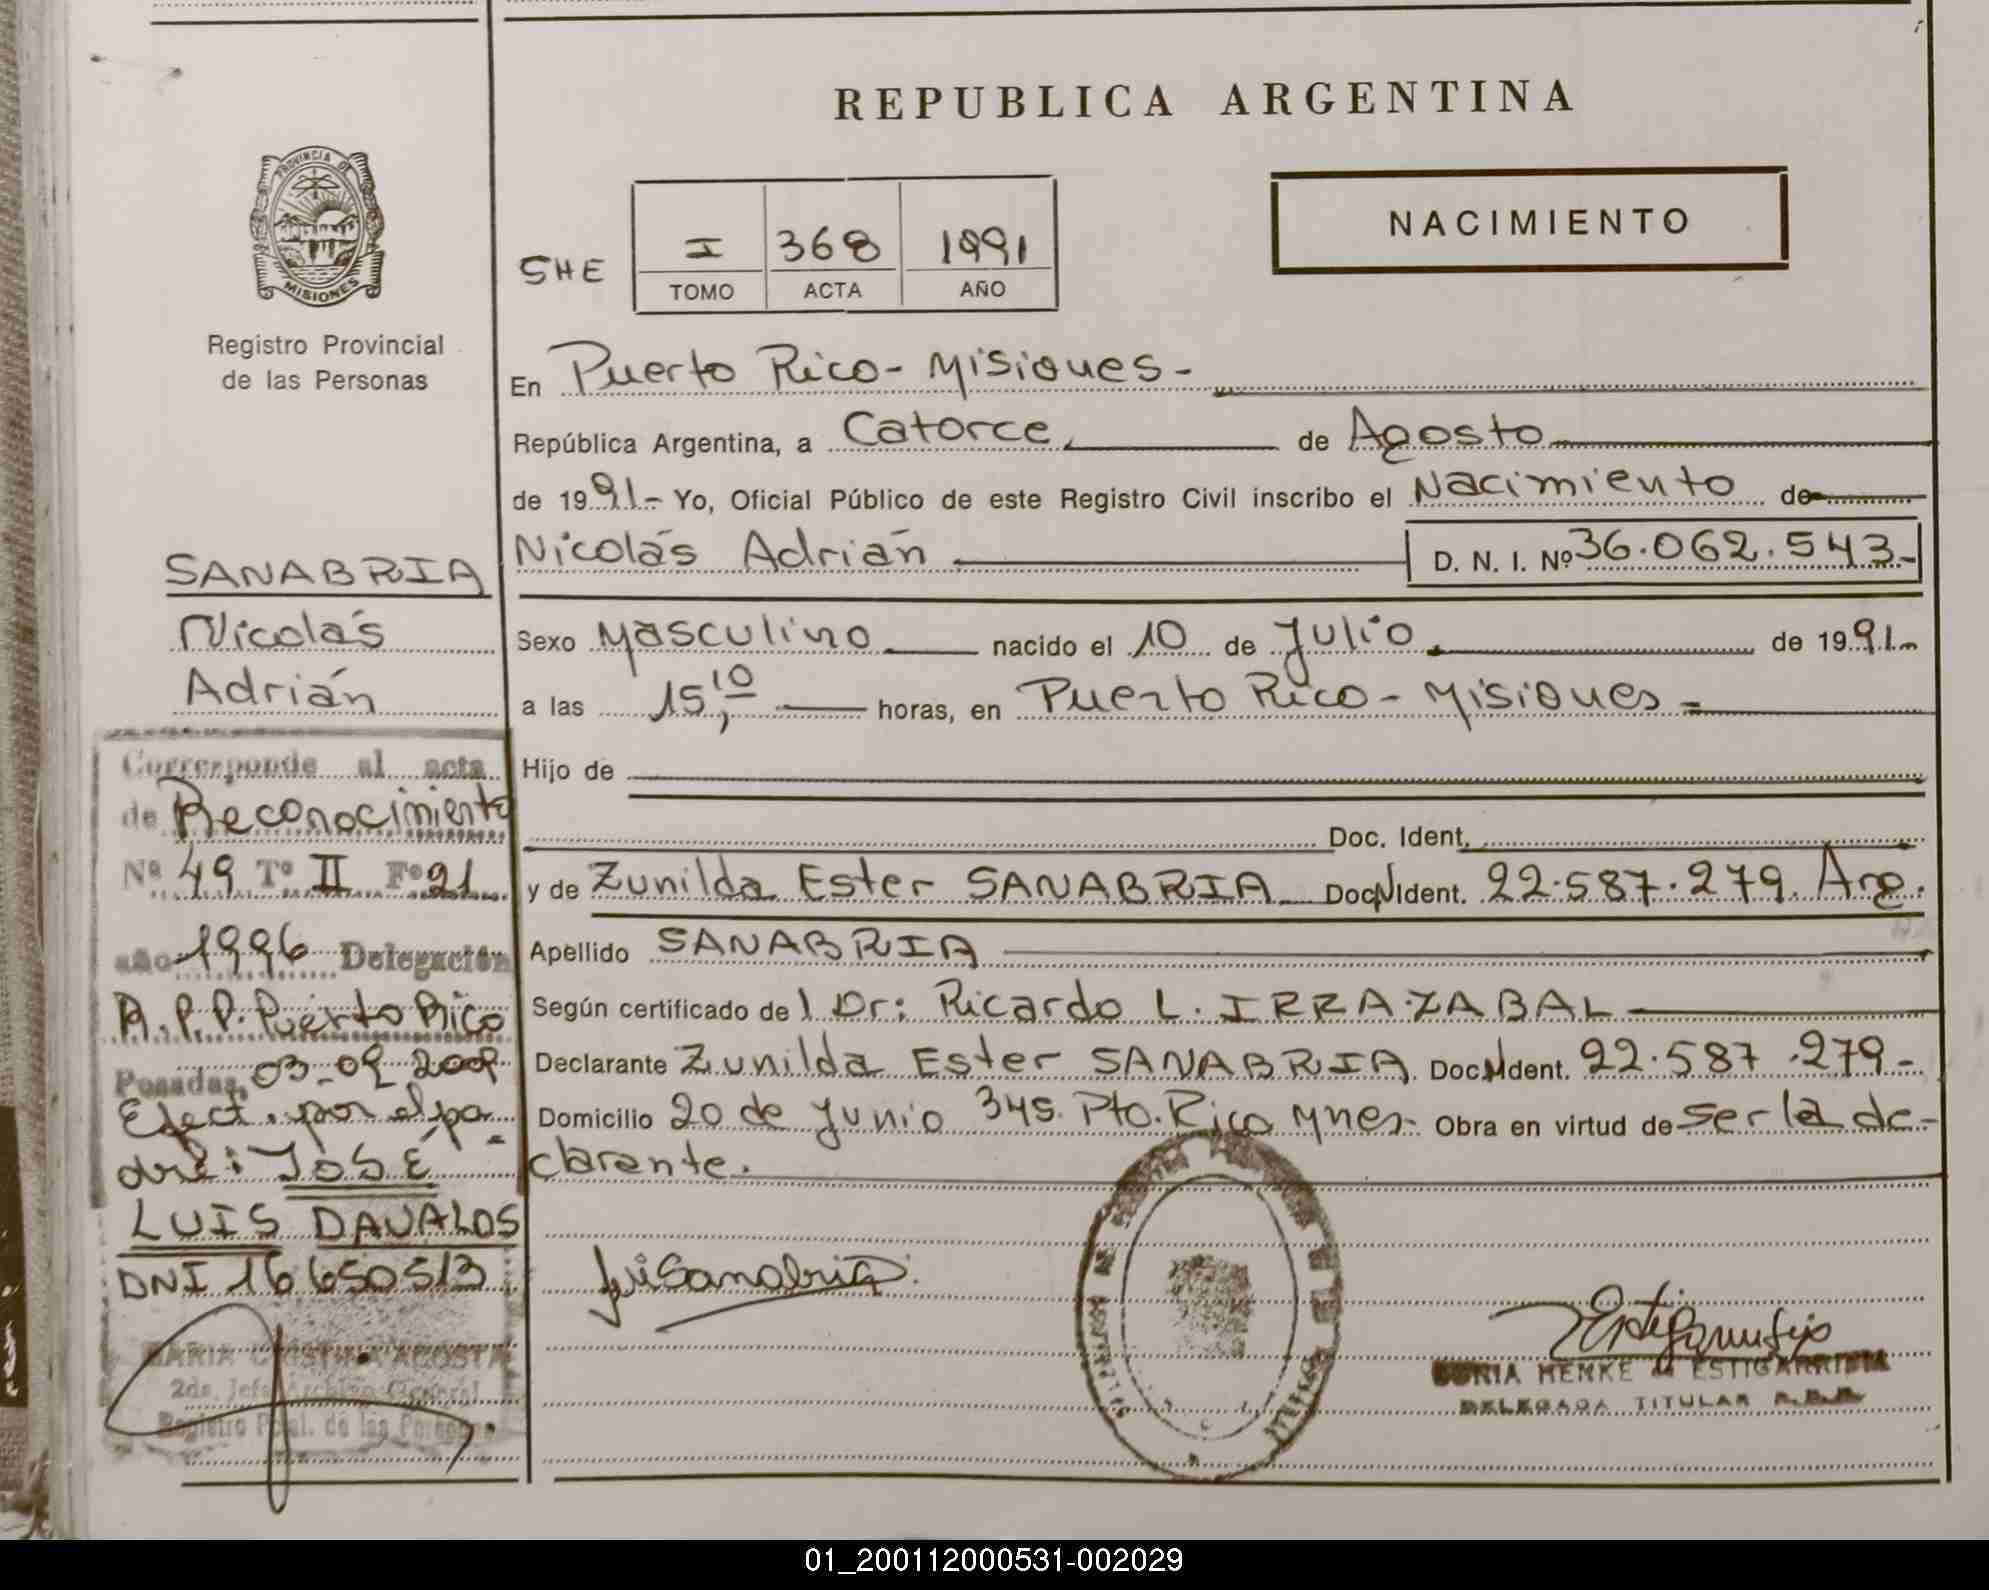 REPUBLICA ARGENTINA
PROVINCIA DE
MISIONES
Registro Provincial
de las Personas
NACIMIENTO
SHE
I 368 1991
TOMO ACTA AÑO
En Puerto Rico - Misiones -
República Argentina, a Catorce de Agosto
de 1991.- Yo, Oficial Público de este Registro Civil inscribo el Nacimiento de
Nicolás Adrián D. N. I. Nº 36.062.543-
Sexo Masculino nacido el 10 de Julio de 1991.-
a las 15,10 horas, en Puerto Rico - Misiones -
Hijo de
Doc. Ident.
y de Zunilda Ester SANABRIA Doc. N Ident. 22.587.279. Arg.
Apellido SANABRIA
Según certificado de l Dr: Ricardo L. IRRAZABAL
Declarante Zunilda Ester SANABRIA. Doc. N Ident. 22.587.279-
Domicilio 20 de Junio 345. Pto. Rico Mnes- Obra en virtud de ser la de-
clarante.
SANABRIA
Nicolás
Adrián
Corresponde al acta
de Reconocimiento
Nº 49 Tº II Fº 91
año 1996 Delegación
R.P.P. Puerto Rico
Posadas, 03-09-2009
Efect. por el pa-
dre: JOSÉ
LUIS DAVALOS
DNI 16650513
MARIA CRISTINA ACOSTA
2da. Jefa Archivo General
Registro Pcial. de las Personas
SONIA HENKE de ESTIGARRIBIA
DELEGADA TITULAR R.P.P.
01_200112000531-002029